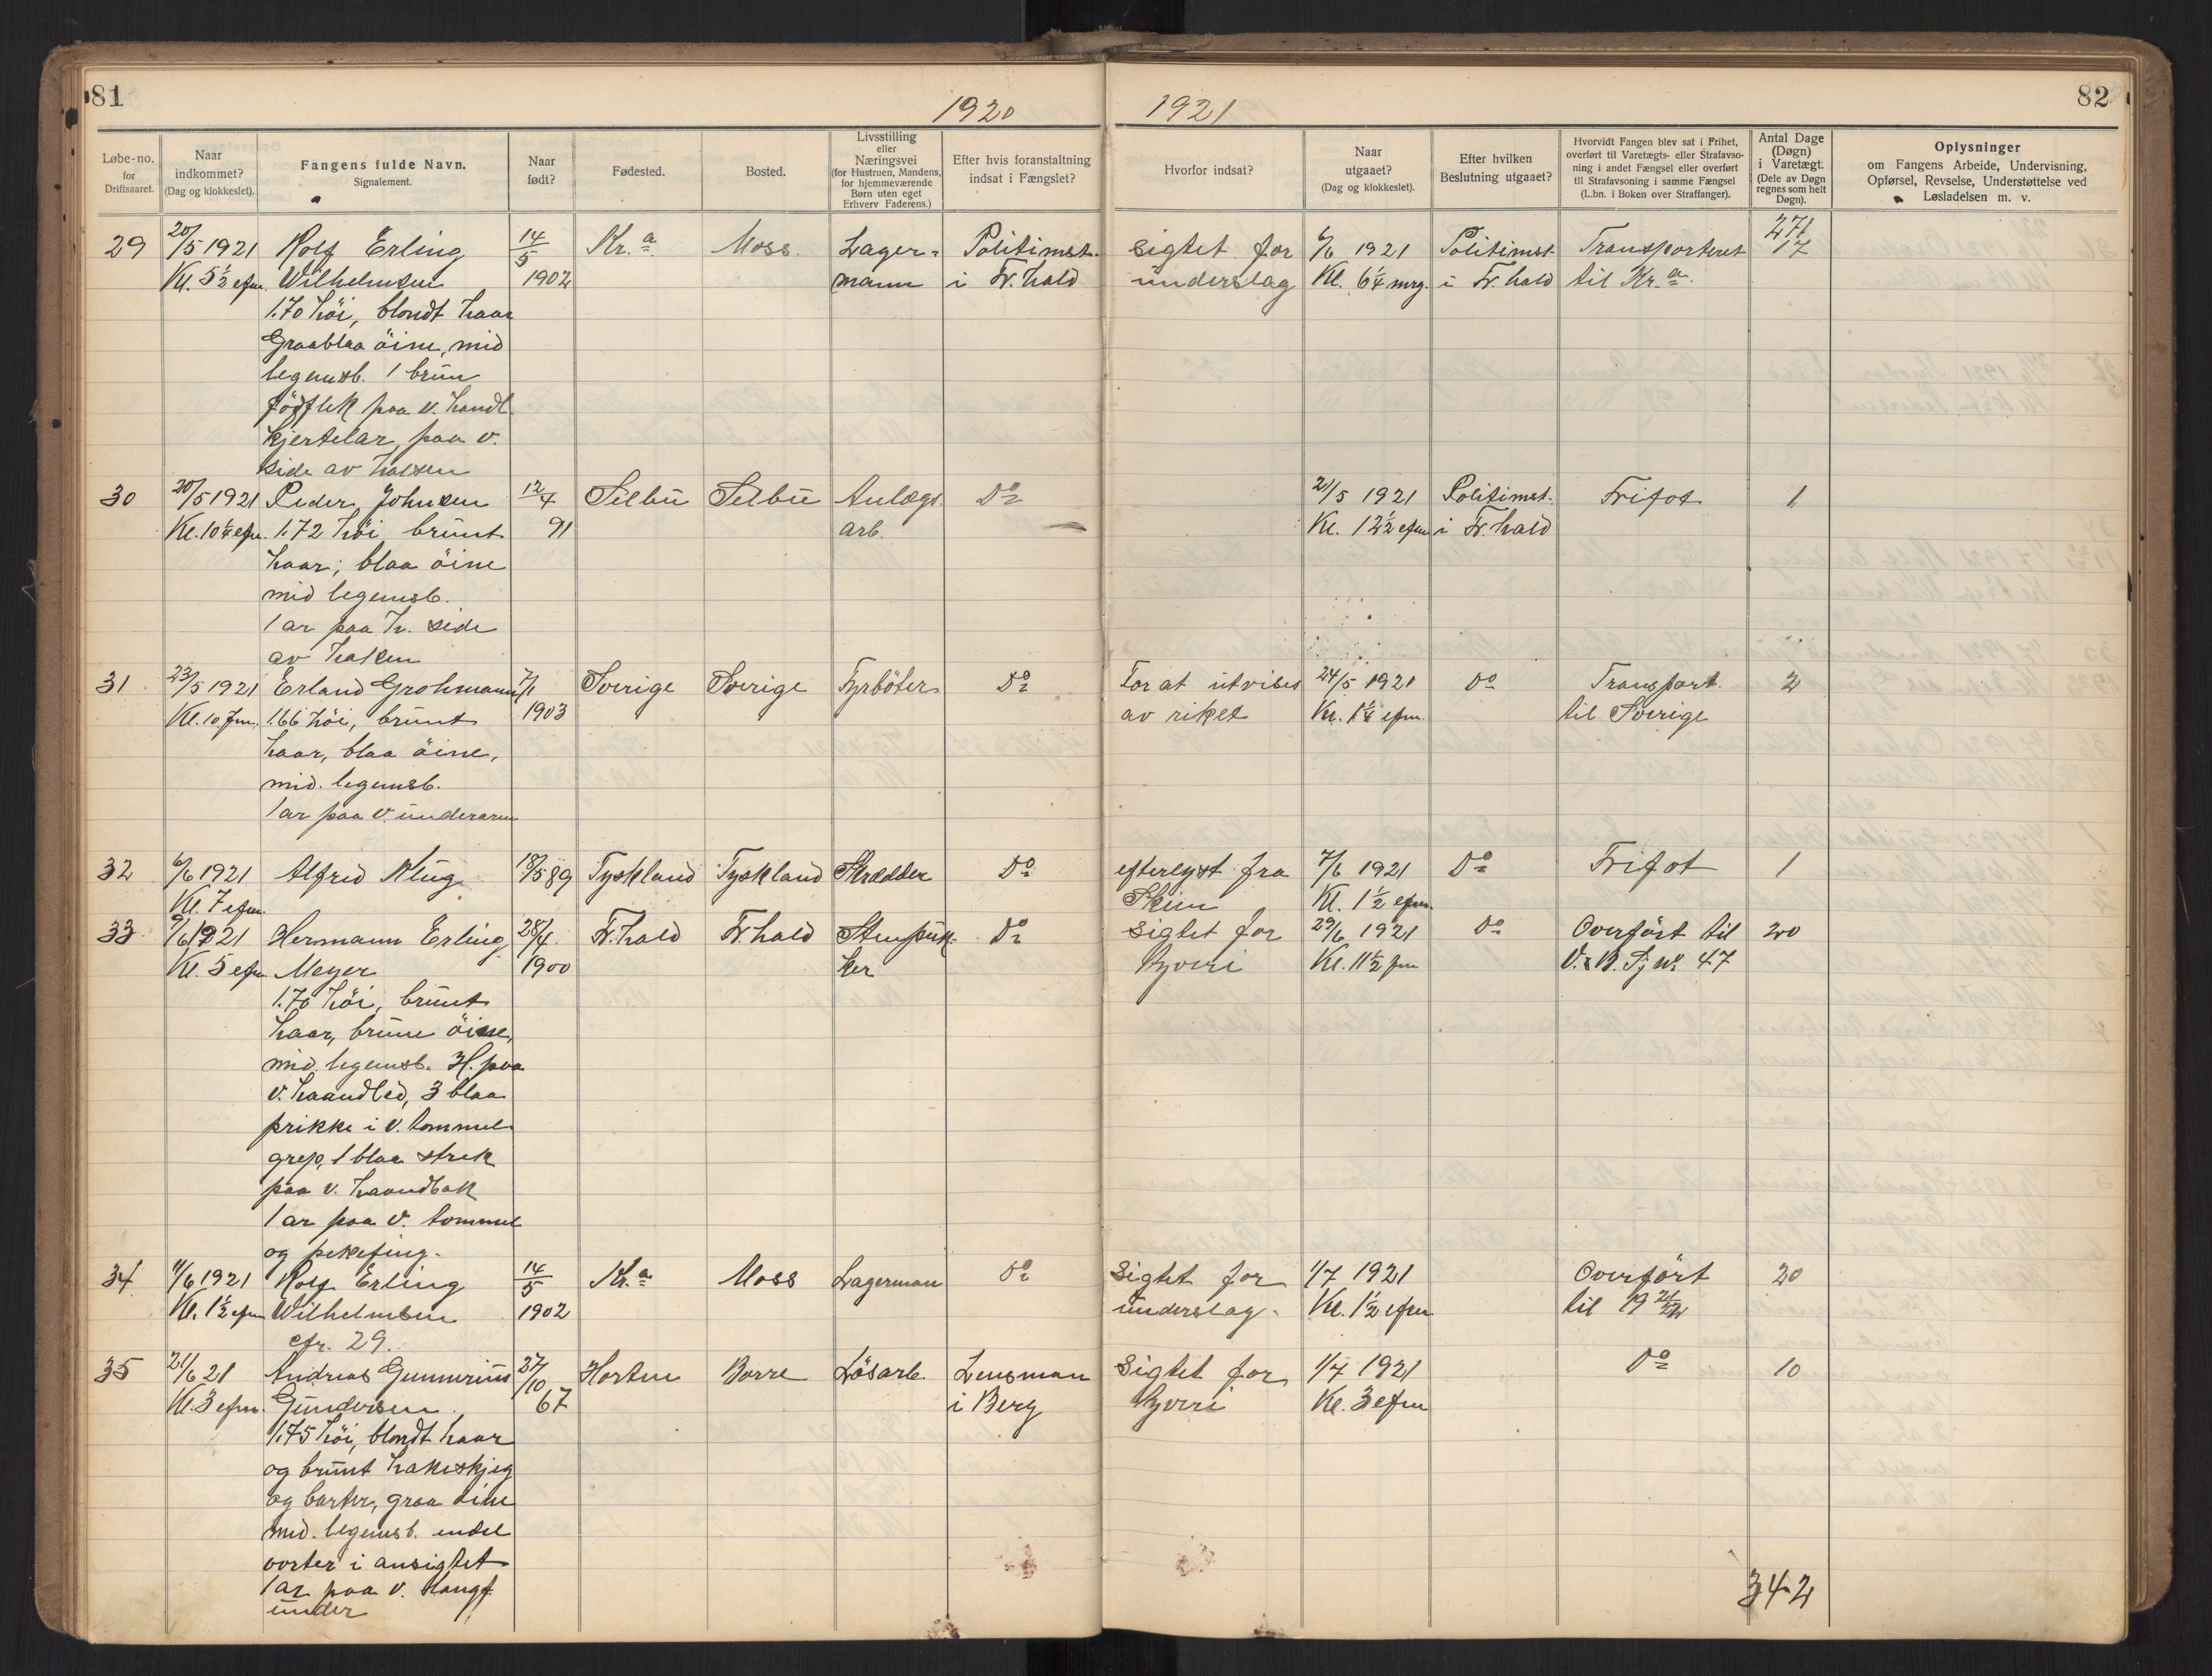 81
1920
1921
82
Løbe-no. for Driftsaaret.
Naar indkommet? (Dag og klokkeslet).
Fangens fulde Navn. Signalement.
Naar født?
Fødested.
Bosted.
Livsstilling eller Næringsvei (for Hustruen, Mandens, for hjemmeværende Børn uten eget Erhverv Faderens.)
Efter hvis foranstaltning indsat i Fængslet?
Hvorfor indsat?
Naar utgaaet? (Dag og klokkeslet).
Efter hvilken Beslutning utgaaet?
Hvorvidt Fangen blev sat i Frihet, overført til Varetægts- eller Strafavsoning i andet Fængsel eller overført til Strafavsoning i samme Fængsel (L.bn. i Boken over Straffanger).
Antal Dage (Døgn) i Varetægt. (Dele av Døgn regnes som helt Døgn).
Oplysninger om Fangens Arbeide, Undervisning, Opførsel, Revselse, Understøttelse ved Løsladelsen m. v.
271
29 20/5 1921 Rolf Erling 14/5 Kr.a Moss. Lager- Politimst. sigtet for 6/6 1921 Politimst Transporteret 17
Kl. 5½ efm. Wilhelmsen 1902 mann i Fr.hald underslag Kl. 6¼ mrg. i Fr.hald til Kr.a
1.70 höi, blondt haar
Graablaa öine, mid
legemsb. 1 brun
födflek paa v. handl
kjertelar, paa v.
side av halsen
30 20/5 1921 Peder Johnsen 12/4 Selbu Selbu Anlægs. Do 21/5 1921 Politimst. Frifot 1
Kl. 10¼ efm. 1.72 höi brunt 91 arb. — Kl. 12½ efm i Fr.hald
haar; blaa öine
mid legemsb.
1 ar paa h. side
av haken
31 23/5 1921 Erland Grohmann 7/1 Sverige Sverige Fyrböter Do For at utvises 24/5 1921 Do Transport. 2
Kl. 10 fm. 1.66 höi, brunt 1903 av riket Kl. 1¼ efm. til Sverige
haar, blaa öine,
mid. legemsb.
1 ar paa v. underarm
32 6/6 1921 Alfred Klug 18/5 89 Tyskland Tyskland Skrædder Do efterlyst fra 7/6 1921 Do Frifot 1
Kl. 7 efm. Skien Kl. 1½ efm.
33 9/6 1921 Hermann Erling 28/4. Fr.hald Fr.hald Stenpuk- Do Sigtet for 29/6 1921 Do Overfört til 20
Kl. 5 efm Meyer 1900 ker tyveri Kl. 11½ fm V. & B. Fj No 47
1.70 höi, brunt
haar, brune öine,
mid legemsb. H. paa
v. haandled, 3 blaa
prikke i v. tommel
grep, 1 blaa strek
paa v. haandbak
1 ar paa v. tommel
og pekefing.
34 11/6 1921 Rolf Erling 14/5 Kr.a Moss Lagerman Do Sigtet for 1/7 1921 Overfört 20
Kl. 1½ efm Wilhelmsen 1902 underslag. Kl. 1½ efm til 19 21/22
cfr. 29.
35 21/6 21 Andreas Gunnerius 27/10 Horten Borre Lösarb. Lensman Sigtet for 1/7 1921 Do 10
Kl. 3 efm. Gundersen. 67 i Berg tyveri Kl. 3 efm
1.75 höi, blondt haar
og brunt hakeskjeg
og barter, graa öine
mid. legemsb. endel
vorter i ansigtet
1 ar paa v. langf
under
342